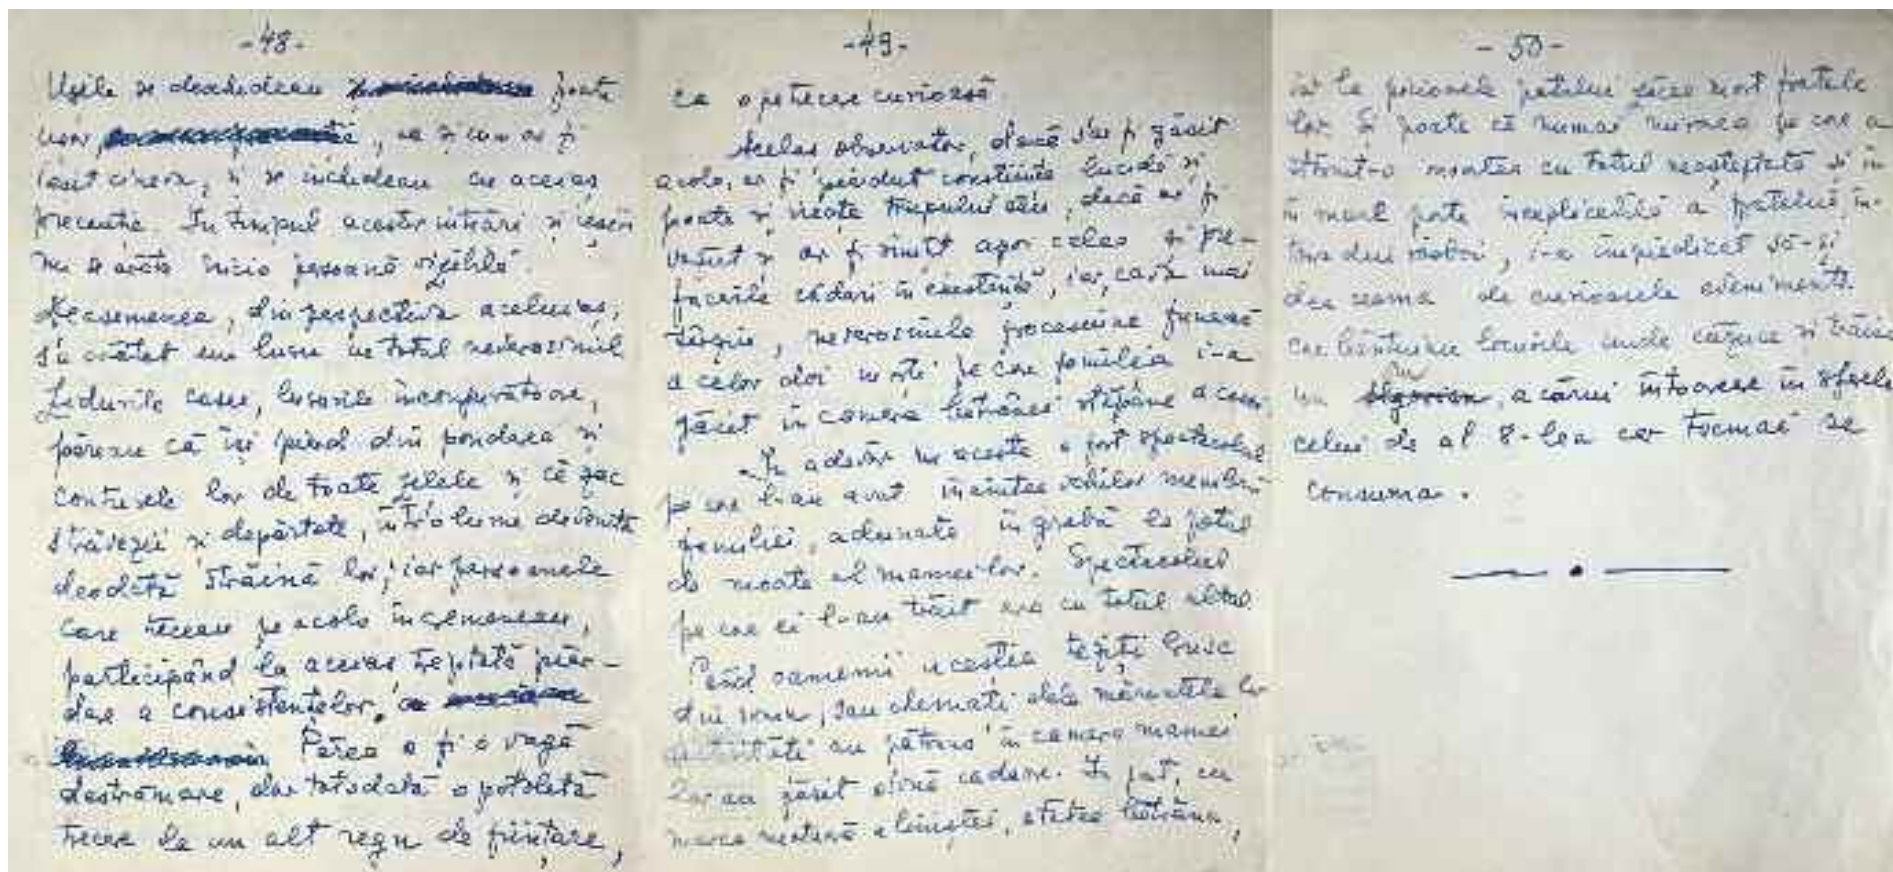 -48-
Ușile se deschideau foarte
ușor, ca și cum ar fi
ieșit cineva, și se închideau cu aceeaș
precauție. In timpul acestor intrări și ieșiri
nu se arăta nicio persoană vizibilă.
Deasemenea, din perspectiva aceluiaș,
s'a arătat un lucru cu totul neverosimil
Zidurile casei, lucrurile înconjurătoare,
păreau că își pierd din pondarea și
contururile lor de toate zilele și că zac
străvezii și depărtate, într'o lume devenită
deodată străină lor, iar persoanele
care treceau pe acolo încremeneau,
participând la aceeaș treptată pier-
dere a consistentelor.
Părea a fi o vagă
destrămare, dar totodată o potolită
trecere la un alt regn de ființare,
-49-
ca o petrecere curioasă.
Acelaș observator, dacă s'ar fi găsit
acolo, ar fi pierdut conștiința lucidă și
poate și viața trupului său, dacă ar fi
văzut și ar fi simțit apoi celea și pre-
facerile căderi în existență, iar, ceva mai
târziu, neverosimila procesiune funerară
a celor doi morți pe care familia i-a
găsit în camera bătrânei stăpâne a casei.
In adevăr nu acesta a fost spectacolul
pe care l-au avut înaintea ochilor membrii
familiei, adunate în grabă la patul
de moarte al mamei lor. Spectacolul
pe care ei l-au trăit era cu totul altul.
Când oamenii aceștia treziți brusc
din somn, sau chemați dela măruntele lor
activități au pătruns în camera mamei
lor au găsit două cadavre. In pat, cu
marea a liniștei, stătea bătrâna,
-50-
iar la picioarele patului zăcea mort fratele
lor. Și poate că numai mirarea pe care a
stârnit-o moartea cu totul neașteptată și în
mare parte inexplicabilă a fratelui, în-
tors din război, i-a împiedicat să-și
dea seama de curioasele evenimente
care bântuiau locurile unde căzuse și trăise
un, a cărui întoarcere în sferele
celui de al 8-lea cer tocmai se
consuma.